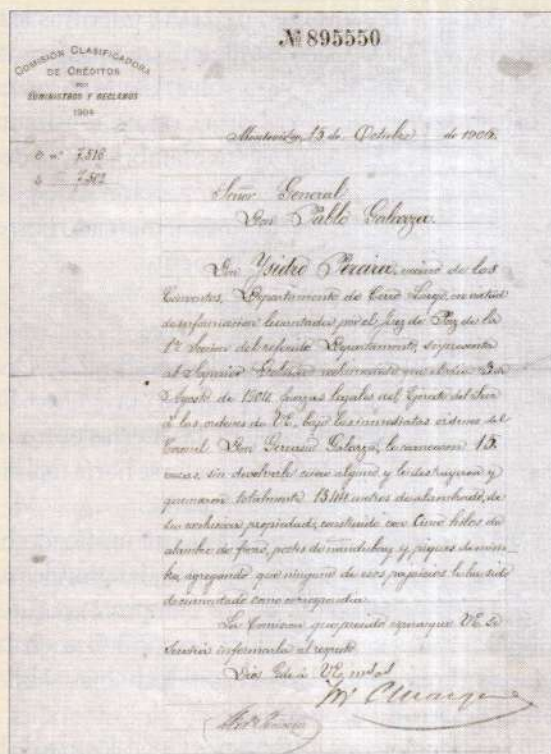 Nº 895550
COMISIÓN CLASIFICADORA
DE CRÉDITOS
POR
SUMINISTROS Y RECLAMOS
1904
Montevideo, 15 de Octubre de 190
O nº 7.516
Señor General
Don Pablo Galarza.
Don Ysidro Pereira, vecino de los
Departamento de Cerro Largo, en virtud
de informacion levantada por el Juez de Paz de la
1ª Sección del referido Departamento, se presenta
al Superior que el dia 3 de
Agosto de 1904, fuerzas legales del Ejército del Sur
a las ordenes de VE, bajo las inmediatas ordenes del
Coronel Don Galarza, le carnearon 15
vacas, sin devolverle cuero alguno, y le destruyeron y
quemaron totalmente 1344 metros de alambrado, de
su exclusiva propiedad, construido con cinco hilos de
alambre de fierro, postes de ñandubay y piques de
agregando que ninguno de esos perjuicios le ha sido
documentado como correspondia.
La Comision que presido espera que VE se
servirá informarla al respecto
Dios Gde á VE, ms as